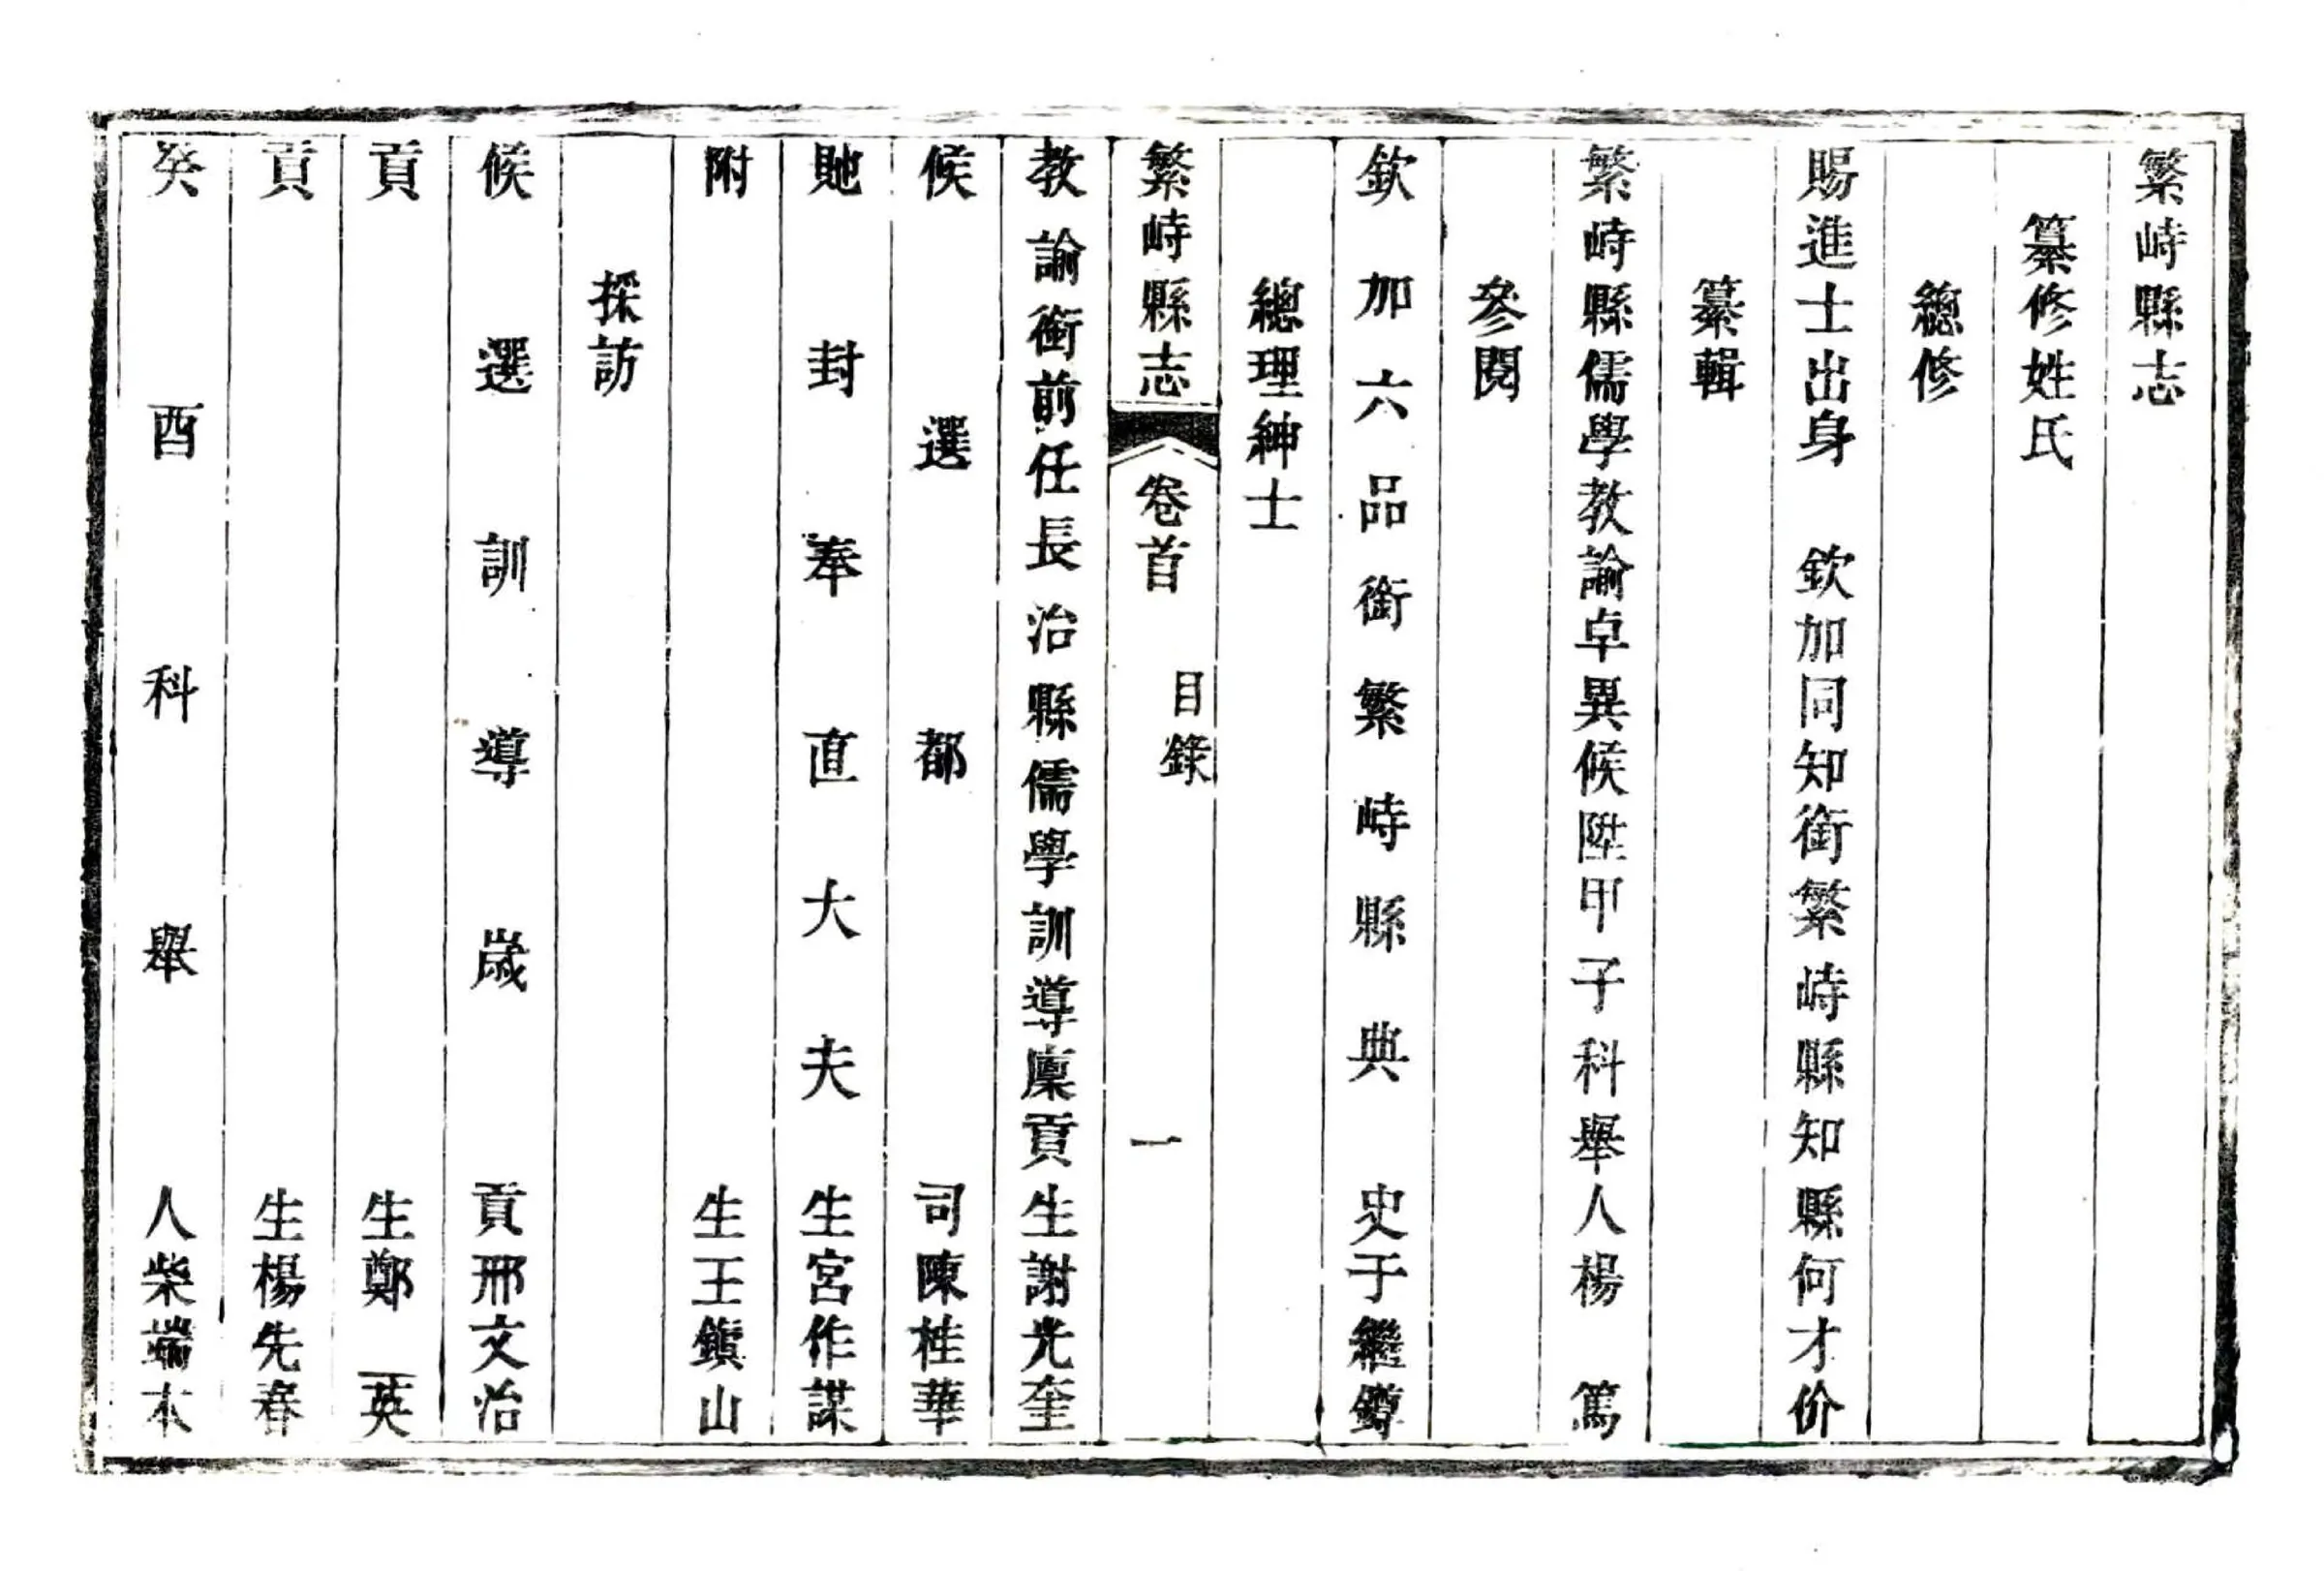 繁峙縣志
纂修姓氏
總修
賜進士出身　欽加同知銜繁峙縣知縣何才价
纂輯
繁峙縣儒學教諭卓異候陞甲子科舉人楊　篤
參閱
欽加六品銜繁峙縣典史于繼鐏
總理紳士
繁峙縣志　卷首　目錄　一
教諭銜前任長治縣儒學訓導廩貢生謝光奎
候選都司陳桂華
貤封奉直大夫生宮作謀
附生王鎮山
採訪
候選訓導歲貢邢文治
貢生鄭　英
貢生楊先春
癸酉科舉人柴端本